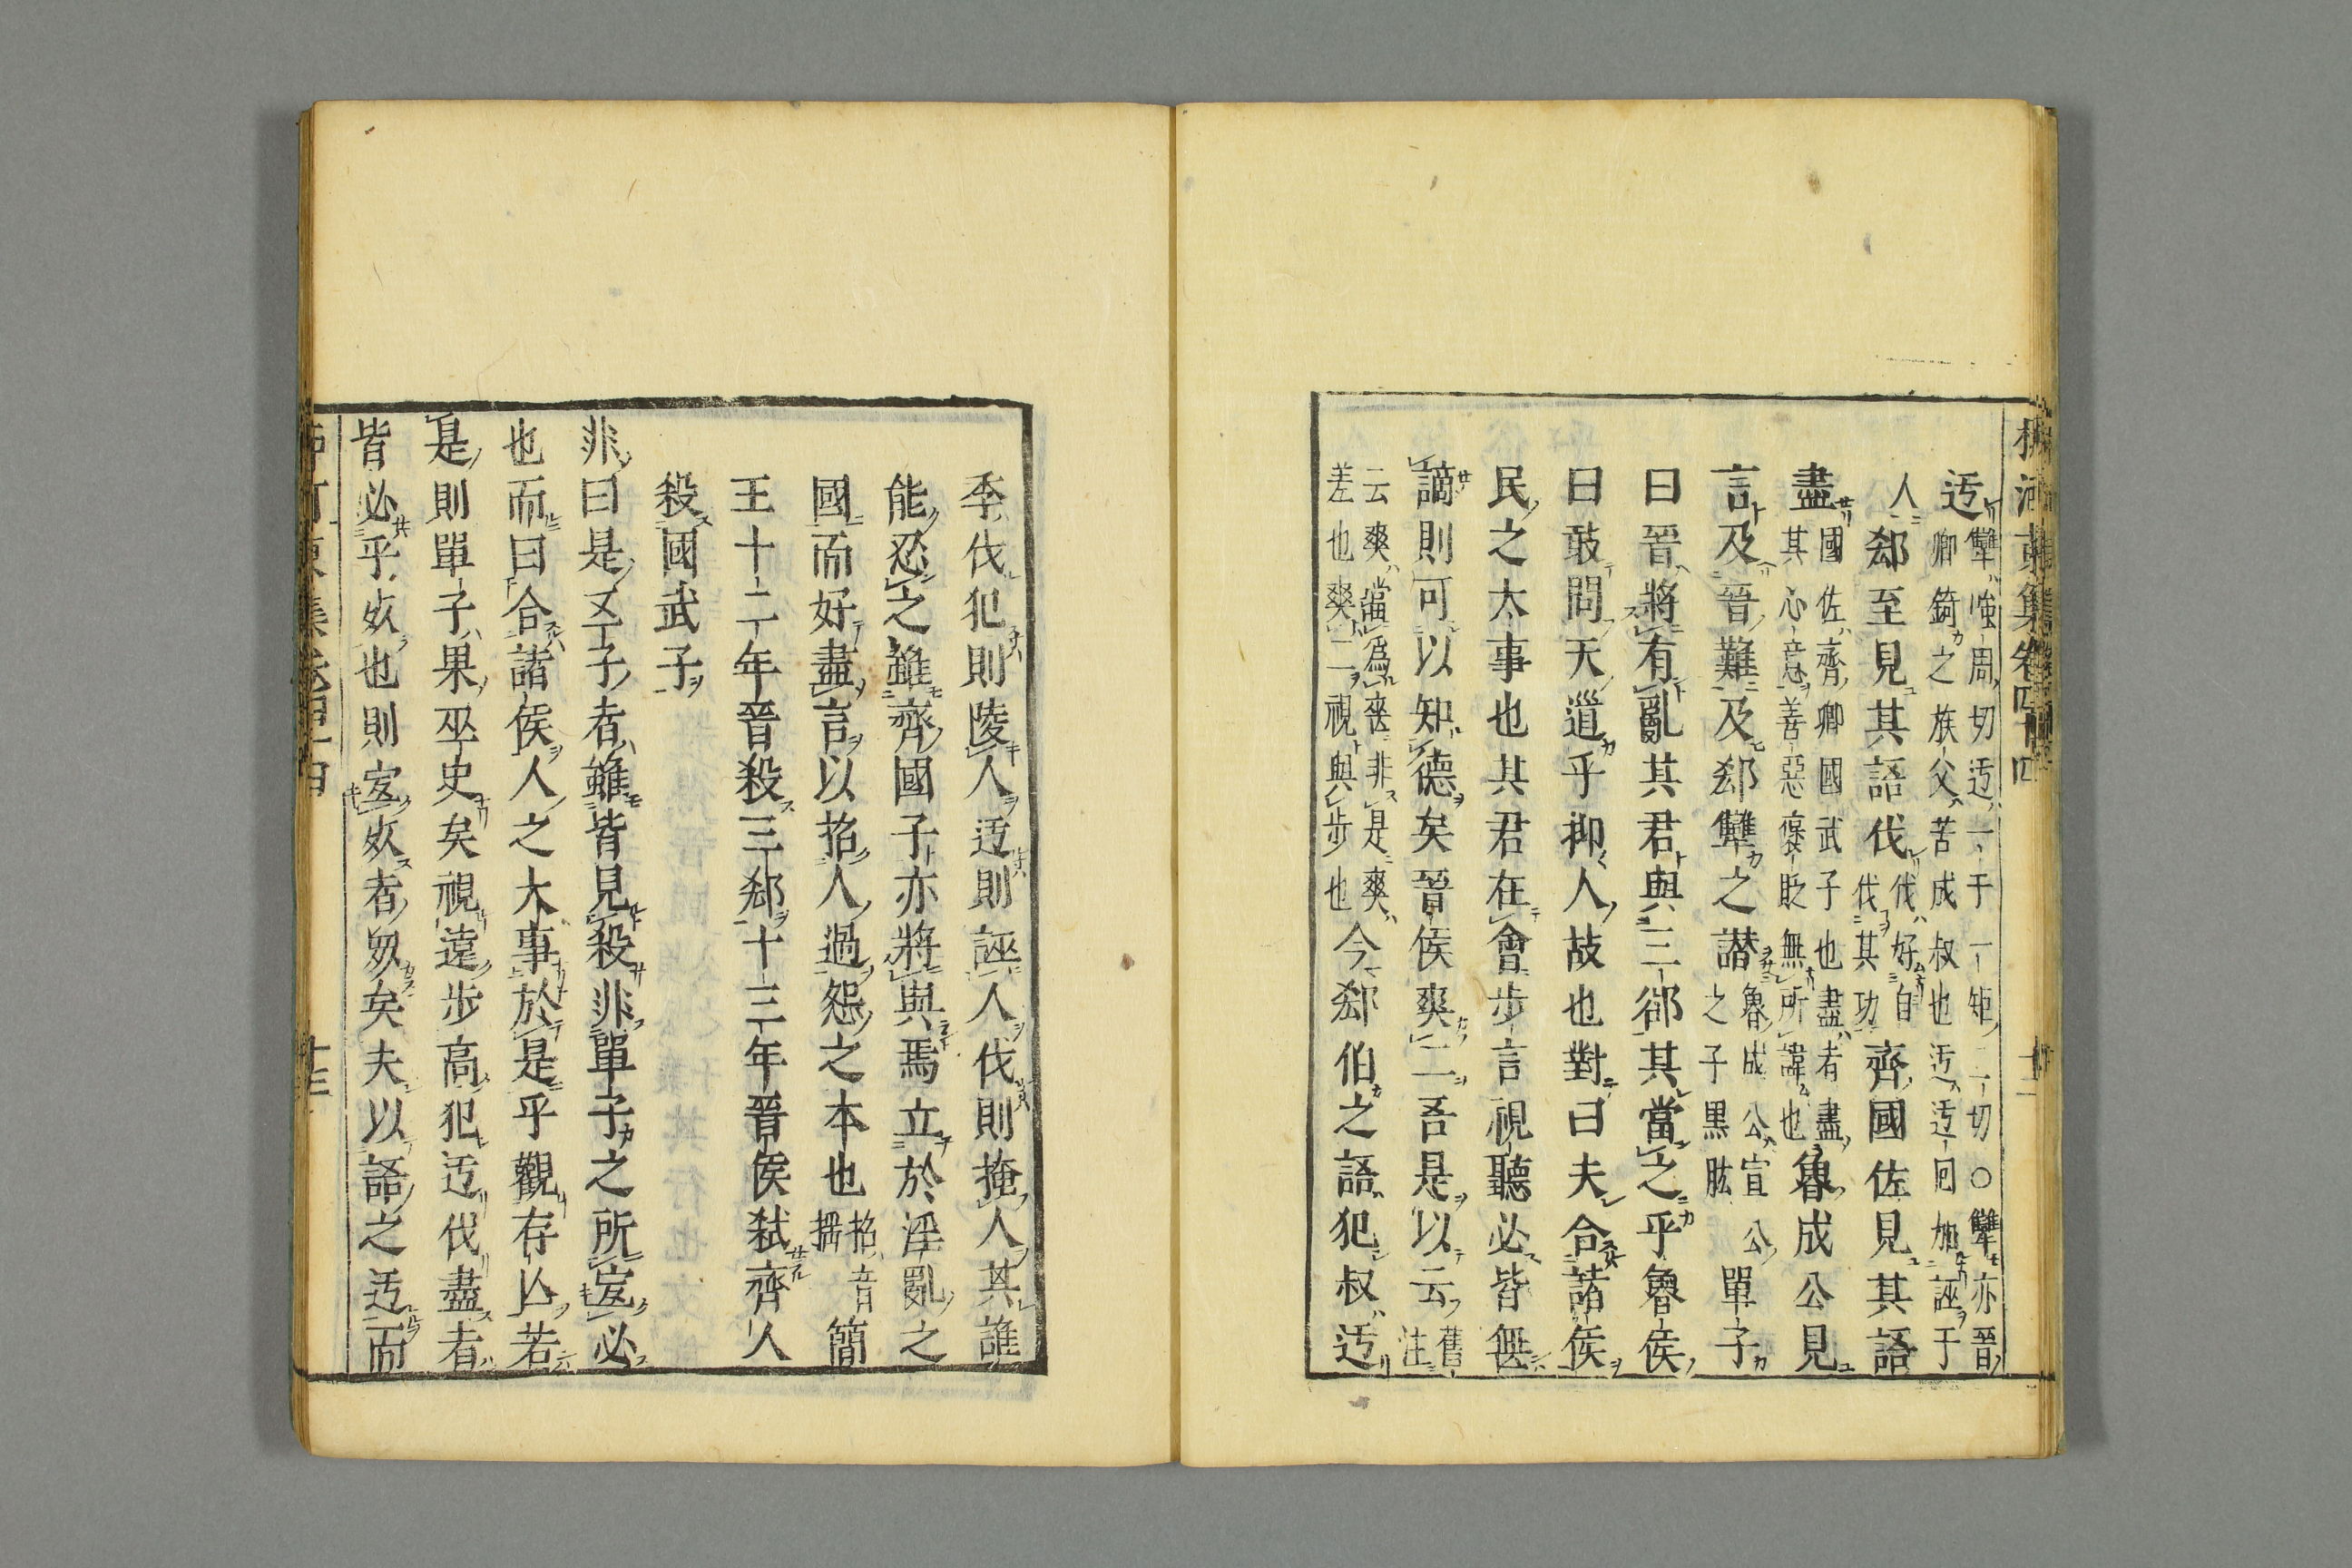 柳河東集卷四十四 十二
迃犨嗤周切迃一于一矩二切○犨亦晉
卿錡之族父苦成叔也迃迃回加誣于
人郄至見其語伐伐好自
伐其功齊國佐見其語
盡國佐齊卿國武子也盡者盡
其心意善惡褒貶無所諱也魯成公見
言及晉難及郄犨之譖魯成公宣公
之子黑肱單子
曰晉將有亂其君與三郤其當之乎魯侯
曰敢問天道乎抑人故也對曰夫合諸侯
民之大事也其君在會步言視聽必皆無
謫則可以知德矣晉侯爽二吾是以云舊
注
云爽當爲喪非是爽
差也爽二視與步也今郄伯之語犯叔迃
季伐犯則陵人迃則誣人伐則掩人其誰
能忍之雖齊國子亦將與焉立於淫亂之
國而好盡言以招人過怨之本也招音
簡
王十二年晉殺三郄十三年晉侯弑齊人
殺國武子
非曰是五子者雖皆見殺非單子之所宜必
也而曰合諸侯人之大事於是乎觀存亡若
是則單子果巫史矣視遠步高犯迃伐盡者
皆必乎死也則宜死者眾矣夫以語之迃而
十三